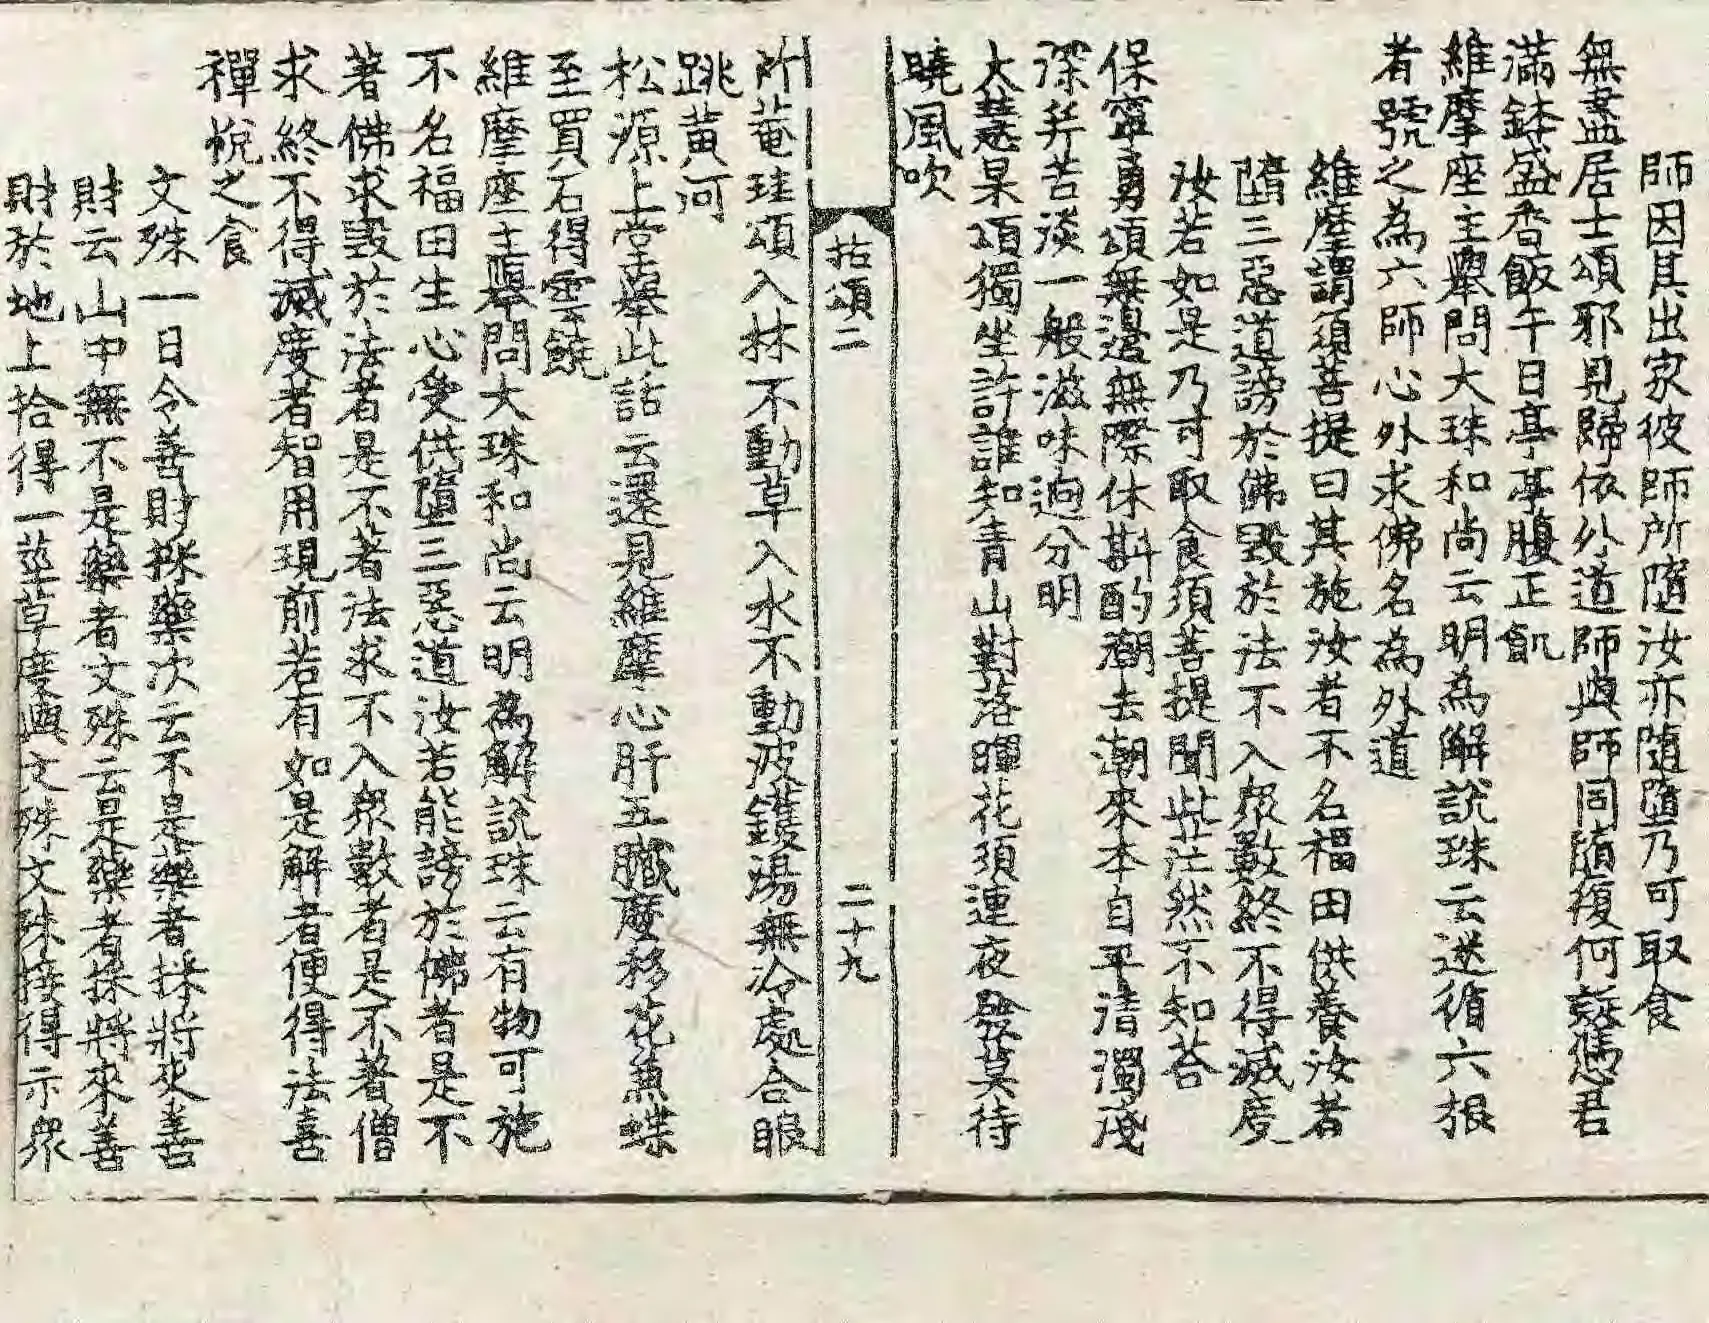 師因其出家彼師所墮汝亦隨墮乃可取食
無盡居士頌邪見歸依外道師與師同墮復何疑憑君
滿鉢盛香飯午日亭亭腹正飢
維摩座主舉問大珠和尚云明為解說珠云迷循六根
者號之為六師心外求佛名為外道
維摩謂須菩提曰其施汝者不名福田供養汝者
墮三惡道謗於佛毀於法不入眾數終不得滅度
汝若如是乃可取食須菩提聞此茫然不知荅
保寧勇頌無邊無際休斟酌潮去潮來本自平清濁淺
深并苦淡一般滋味逈分明
大慧杲頌獨坐許誰知青山對落暉花須連夜發莫待
曉風吹
拈頌二
二十九
所菴珪頌入林不動草入水不動波鑊湯無冷處合眼
跳黄河
松源上堂舉此話云還見維摩心肝五臟麼移花兼蝶
至買石得雲饒
維摩座主舉問大珠和尚云明為解說珠云有物可施
不名福田生心受供墮三惡道汝若能謗於佛者是不
著佛求毀於法者是不著法求不入眾數者是不著僧
求終不得滅度者智用現前若有如是解者便得法喜
禪悅之食
文殊一日令善財採藥次云不是藥者採將來善
財云山中無不是藥者文殊云是藥者採將來善
財於地上拾得一莖草度與文殊文殊接得示眾